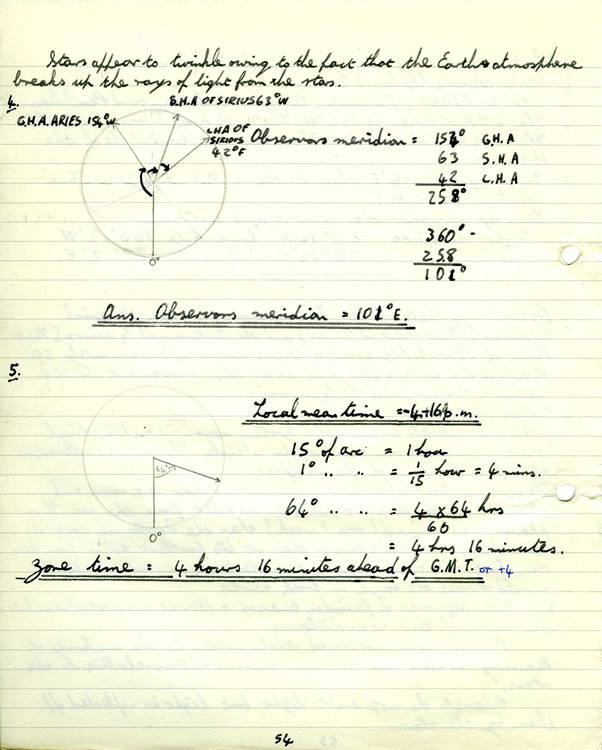 Stars appear to twinkle owing to the fact that the Earths atmosphere
breaks up the rays of light from the stars.
4.
S.H.A OF SIRIUS 63°W
G.H.A. ARIES 154°W
LHA OF
SIRIUS
42°E
Observors meridian = 154° G.H.A
63 S.H.A
42 L.H.A
258°
360° -
258
101°
Ans. Observors meridian = 101°E.
5.
Local mean time = 4.16 p.m.
15° of arc = 1 hour
1° .. .. = 1/15 hour = 4 mins.
64° .. .. = 4 x 64 hrs
60
= 4 hrs 16 minutes.
64°
0°
0°
Zone time = 4 hours 16 minutes ahead of G.M.T. or +4
54